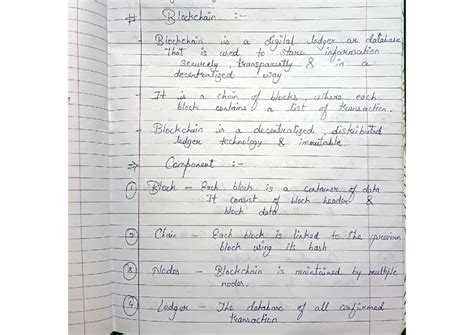 # Blockchain :-
- Blockchain is a digital ledger or database
that is used to store information
securely, transparently & in a
decentralized way
- It is a chain of blocks, where each
block contains a list of transaction.
- Blockchain is a decentralized, distributed
ledger technology & immutable
⇒ Component :-
① Block - Each block is a container of data
It consist of block header &
block data
② Chain - Each block is linked to the previous
block using its hash
③ Nodes - Blockchain is maintained by multiple
nodes.
④ Ledger - The database of all confirmed
transaction